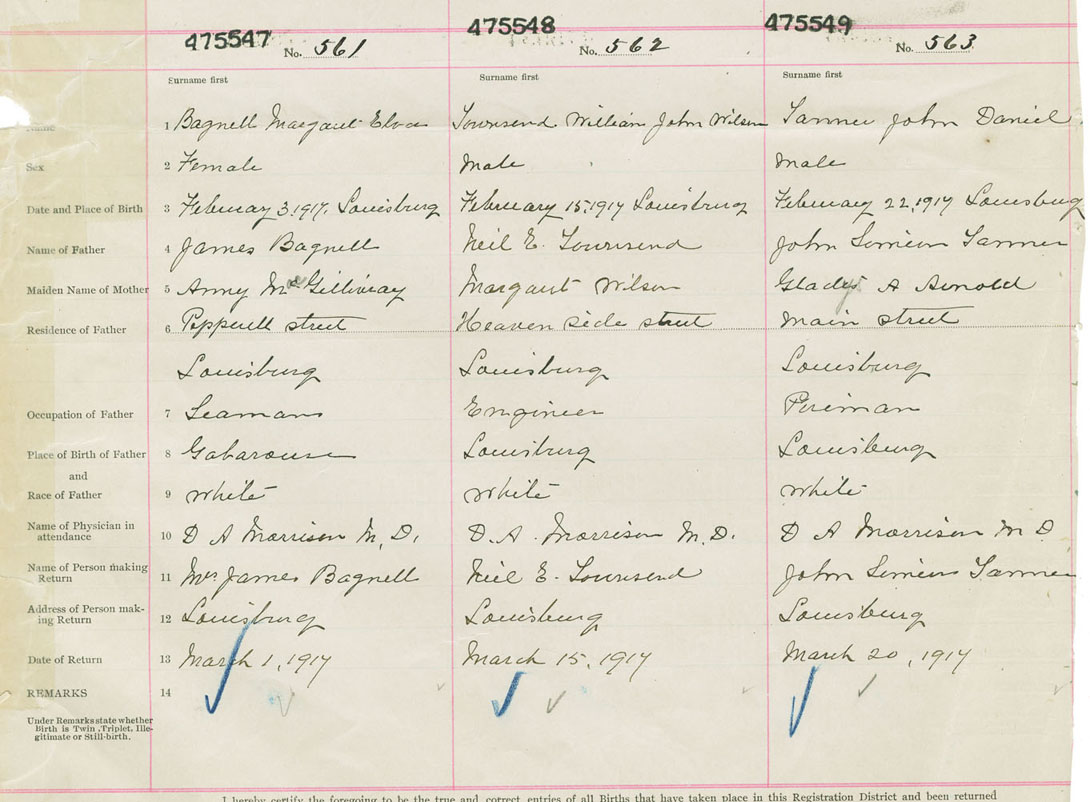 475547 475548 475549
No. 561 No. 562 No. 563
Surname first Surname first Surname first
Name 1 Bagnell Margaret Elva Townsend William John Wilson Tanner John Daniel
Sex 2 Female Male Male
Date and Place of Birth 3 February 3, 1917, Louisburg February 15, 1917 Louisburg February 22, 1917 Louisburg
Name of Father 4 James Bagnell Neil E. Townsend John Simeon Tanner
Maiden Name of Mother 5 Anny McGillivray Margaret Wilson Gladys A Arnold
Residence of Father 6 Pepperell street Heaven side street Main street
Louisburg Louisburg Louisburg
Occupation of Father 7 Seaman Engineer Fireman
Place of Birth of Father 8 Gabarouse Louisburg Louisburg
and
Race of Father 9 White White White
Name of Physician in attendance 10 D A Morrison M. D. D. A. Morrison M. D. D A Morrison M D
Name of Person making Return 11 Mrs James Bagnell Neil E. Townsend John Simeon Tanner
Address of Person mak-ing Return 12 Louisburg Louisburg Louisburg
Date of Return 13 March 1, 1917 March 15, 1917 March 20, 1917
REMARKS 14
Under Remarks state whether
Birth is Twin, Triplet, Ille-
gitimate or Still-birth.
I hereby certify the foregoing to be the true and correct entries of all Births that have taken place in this Registration District and been returned